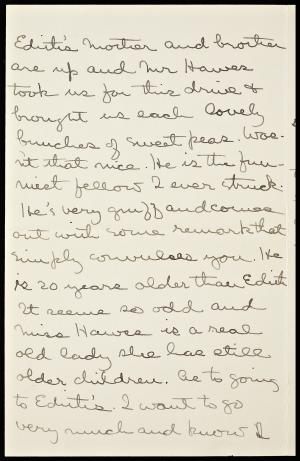 Edith's mother and brother
are up and Mr Hawes
took us for this drive &
brought us each lovely
bunches of sweet peas. Was-
n't that nice. He is the fun-
niest fellow I ever struck.
He's very gruff and comes
out with some remark that
simply convulses you. He
is 20 years older than Edith
It seems so odd and
Miss Hawes is a real
old lady she has still
older children. As to going
to Edith's. I want to go
very much and know I